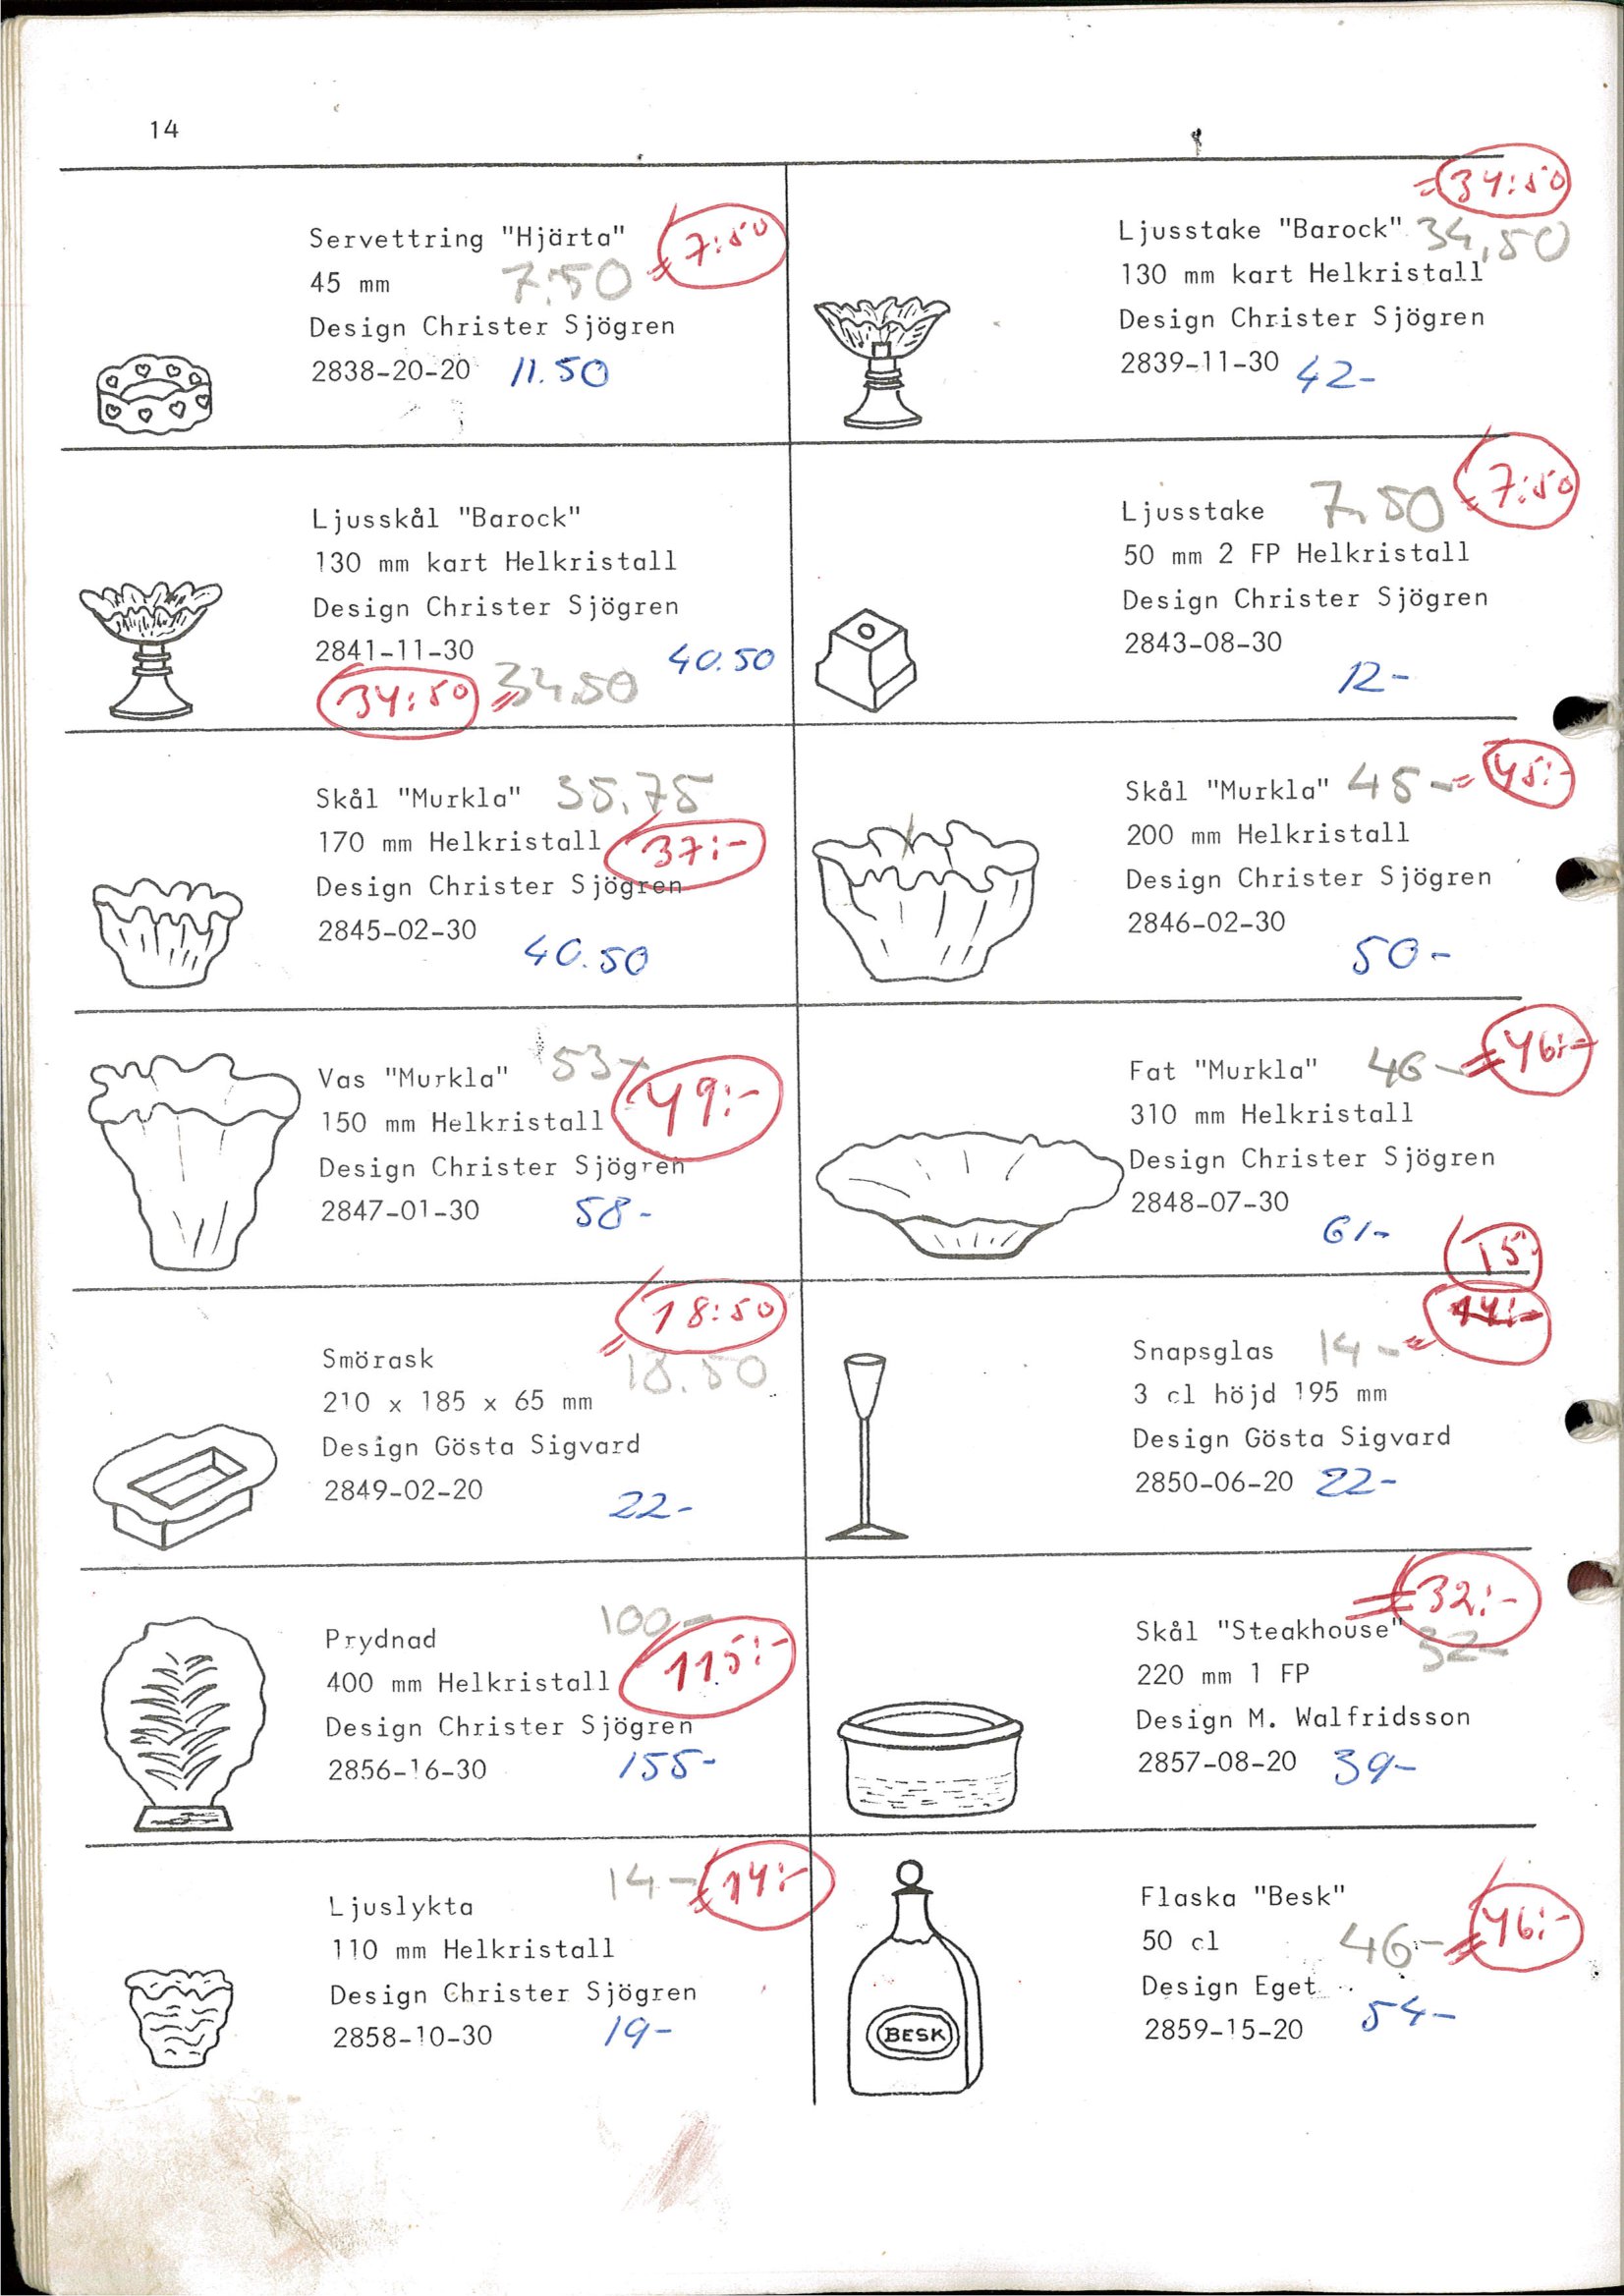 14
Servettring "Hjärta"
=7:50
45 mm
7.50
Design Christer Sjögren
2838-20-20
11.50
=34:50
Ljusstake "Barock"
34,50
130 mm kart Helkristall
Design Christer Sjögren
2839-11-30
42-
Ljusskål "Barock"
130 mm kart Helkristall
Design Christer Sjögren
2841-11-30
40.50
34:50 = 34.50
Ljusstake
7.50
=7:50
50 mm 2 FP Helkristall
Design Christer Sjögren
2843-08-30
12-
Skål "Murkla"
35.75
170 mm Helkristall
37:-
Design Christer Sjögren
2845-02-30
40.50
Skål "Murkla"
45-
=45:-
200 mm Helkristall
Design Christer Sjögren
2846-02-30
50-
Vas "Murkla"
53-
150 mm Helkristall
49:-
Design Christer Sjögren
2847-01-30
58-
Fat "Murkla"
46-
=46:-
310 mm Helkristall
Design Christer Sjögren
2848-07-30
61-
=18:50
Smörask
18.50
210 x 185 x 65 mm
Design Gösta Sigvard
2849-02-20
22-
15
14:-
Snapsglas
14-=
3 cl höjd 195 mm
Design Gösta Sigvard
2850-06-20
22-
100-
Prydnad
115:-
400 mm Helkristall
Design Christer Sjögren
2856-16-30
155-
=32:-
Skål "Steakhouse"
32-
220 mm 1 FP
Design M. Walfridsson
2857-08-20
39-
14-
=14:-
Ljuslykta
110 mm Helkristall
Design Christer Sjögren
2858-10-30
19-
Flaska "Besk"
50 cl
46-
=46:-
Design Eget
2859-15-20
54-
BESK